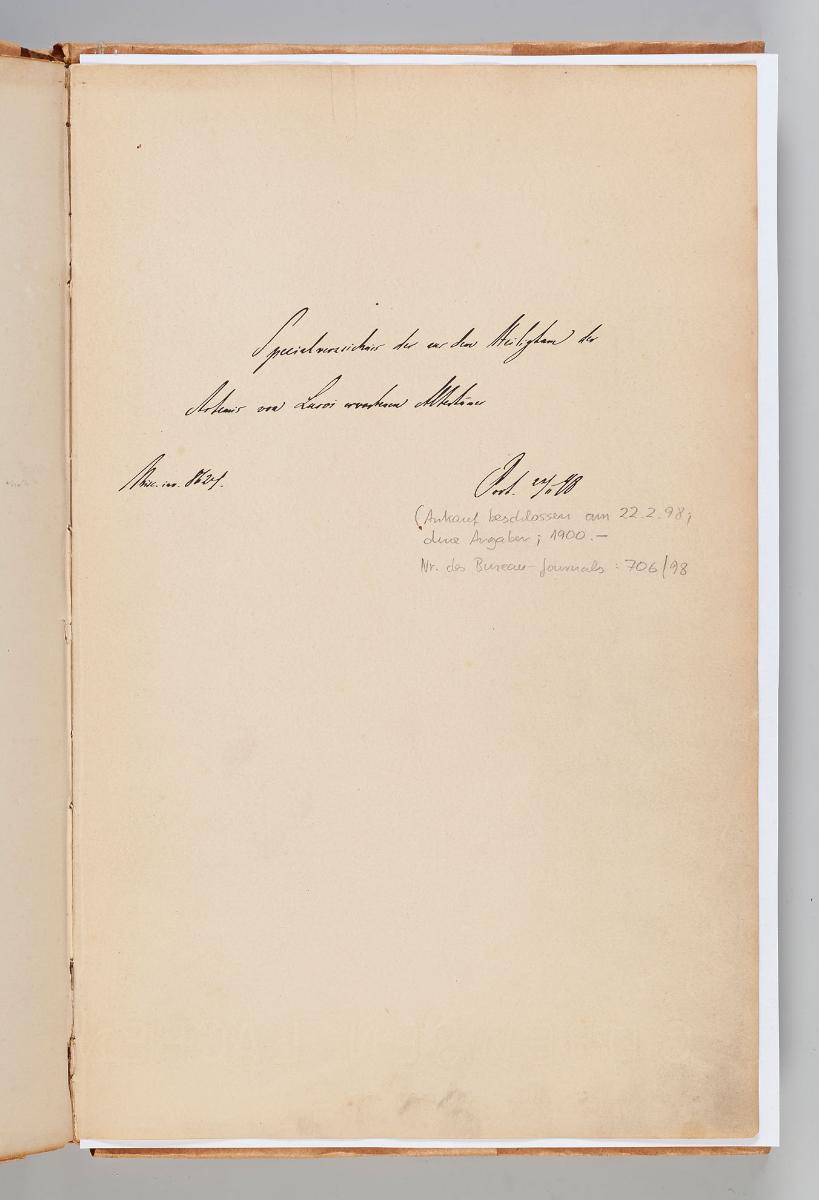 Specialverzeichnis der aus dem Heiligtum der
Artemis von Lusoi erworbenen Altertümer
Misc. inv. 8624.
Port. 22/II 98
(Ankauf beschlossen am 22.2.98;
ohne Angaben; 1900.—
Nr. des Bureau-Journals: 706/98